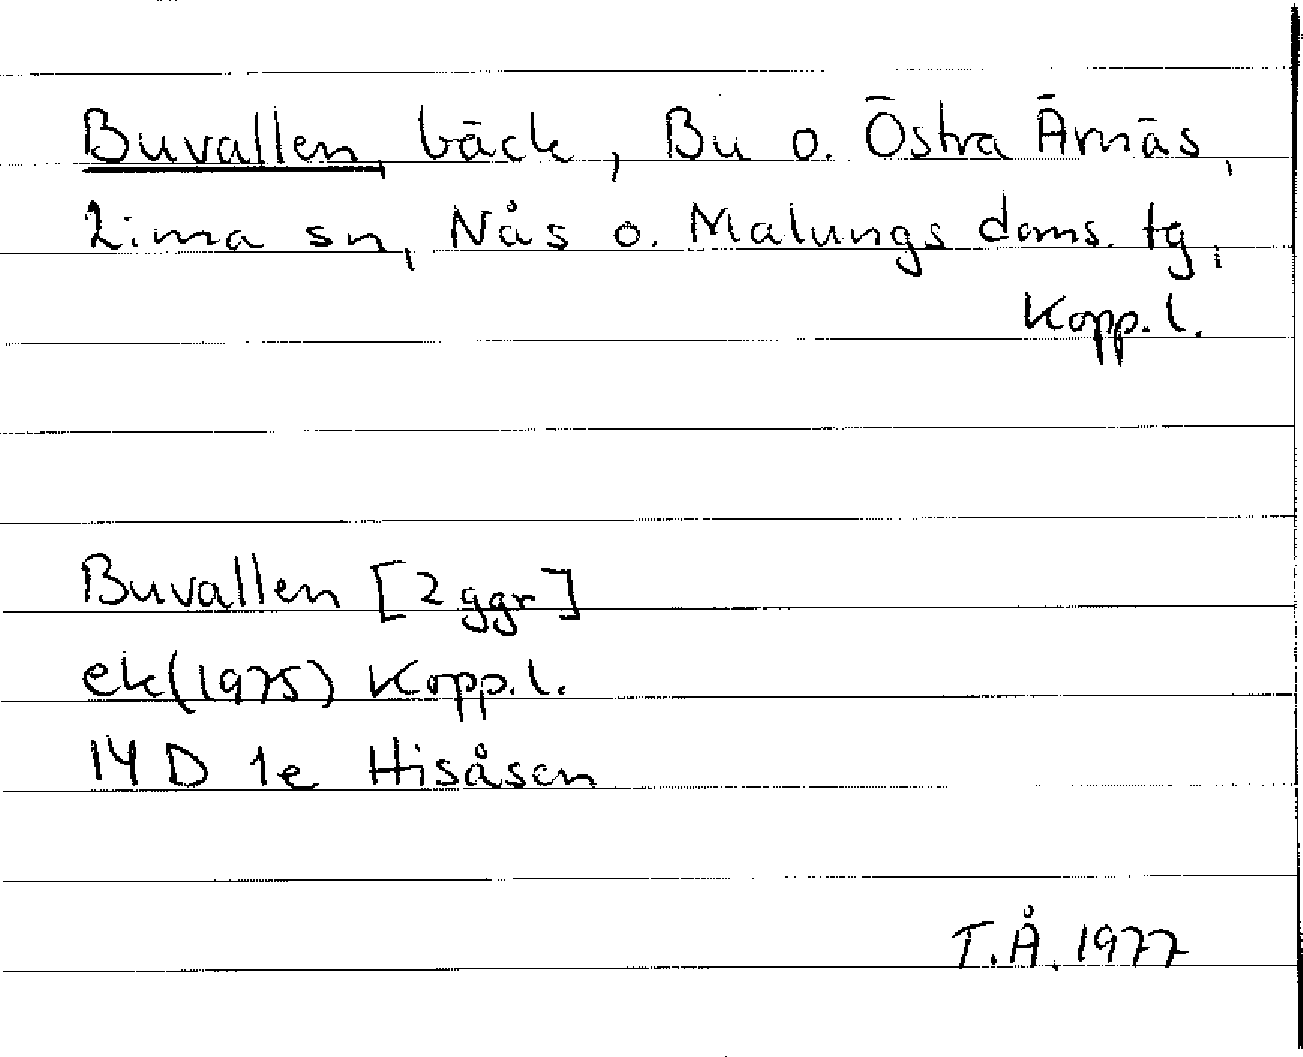 Buvallen, bäck, Bu o. Östra Ärnäs,
Lima sn, Nås o. Malungs doms. tg,
Kopp. l.
Buvallen [2 ggr]
ek (1975) Kopp. l.
14 D 1e Hisåsen
T.Å. 1977